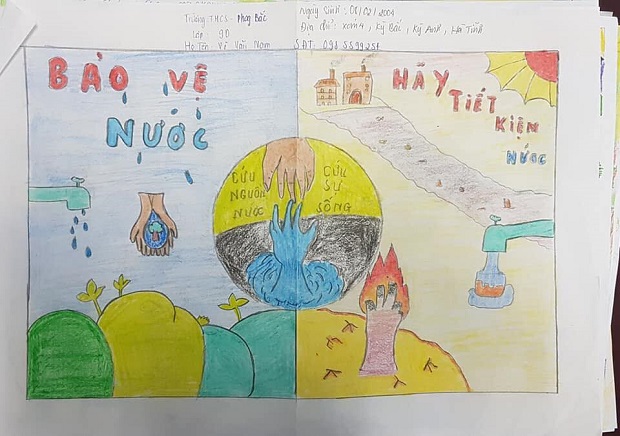 Trường THCS - Phong Bắc
Lớp 9D
Họ Tên Vi Văn Nam
Ngày Sinh: 08/02/2004
Địa chỉ: xóm 4, Kỳ Bắc, Kỳ Anh, Hà Tĩnh
SĐT:
BẢO VỆ
NƯỚC
HÃY
TIẾT
KIỆN
NƯỚC
CỨU
NGUỒN
NƯỚC
CỨU
SỰ
SỐNG